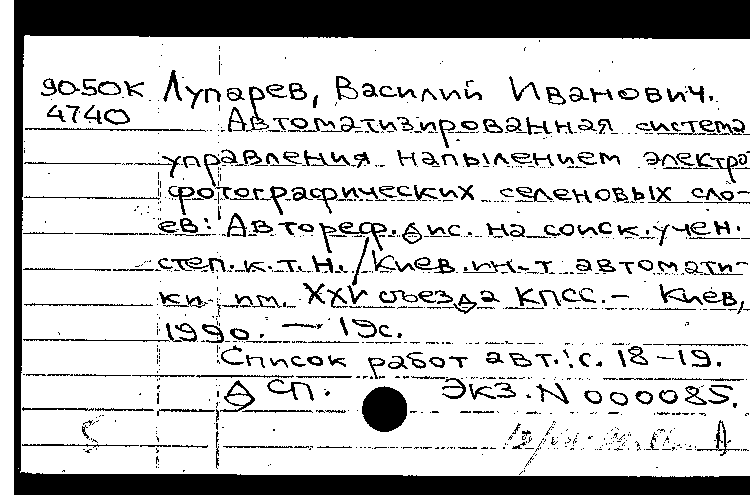 90-50К Лупарев, Василий Иванович.
4740 Автоматизированная система
управления напылением электро
фотографических селеновых сло-
ев: Автореф. дис. на соиск. учен.
степ. к.т.н. / Киев. ин-т автомати-
ки им. XXV съезда КПСС. - Киев,
1990. — 19с.
Список работ авт.: с. 18-19.
ДСП. Экз. N 000085.
5 А